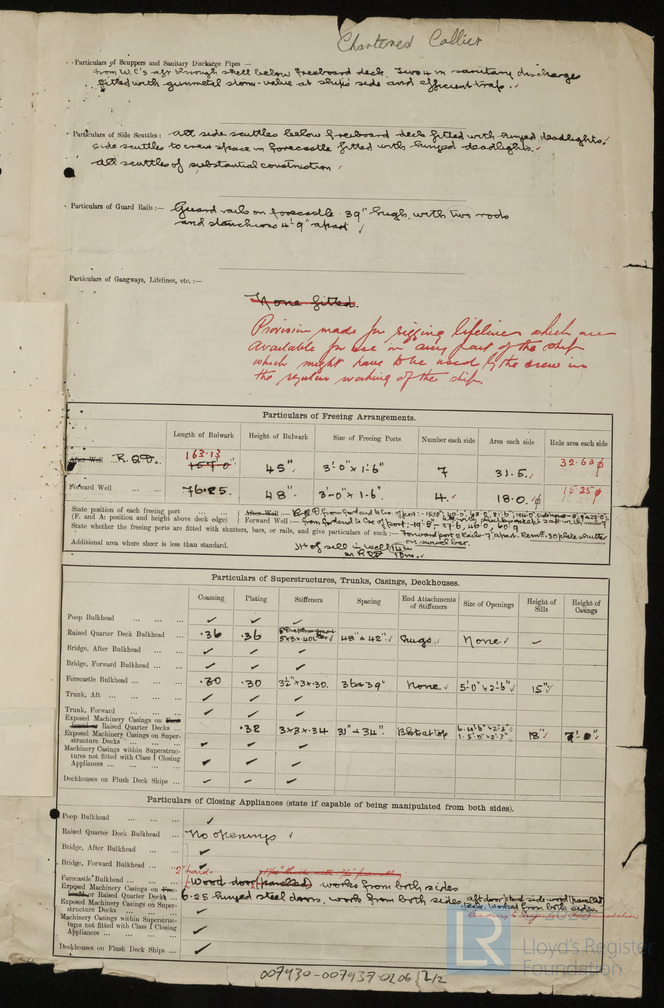 Chartered Collier
Particulars of Scuppers and Sanitary Discharge Pipes —
from W.C's aft through shell below freeboard deck. Two 4 in sanitary discharges
fitted with gunmetal storm-valve at ships side and efficient trap.
Particulars of Side Scuttles: All side scuttles below freeboard deck fitted with hinged deadlights.
Side scuttles to crew space in forecastle fitted with hinged deadlights.
All scuttles of substantial construction
Particulars of Guard Rails:— Guard rails on forecastle 39" high with two rods
and stanchions 4'-9" apart
Particulars of Gangways, Lifelines, etc.:—
None fitted.
Provision made for rigging lifelines which are
available for use in any part of the ship
which might have to be used by the crew in
the regular working of the ship.
Particulars of Freeing Arrangements.
Length of Bulwark Height of Bulwark Size of Freeing Ports Number each side Area each side Rule area each side
After Well R.Q.D. 163.13 45" 3'-0" x 1'-6" 7 31.5 32.63
Forward Well 76.25 48" 3'-0" x 1'-6" 4 18.0 15.25
State position of each freeing port
(F. and A. position and height above deck edge)
After Well:—
Forward Well:— from for'd end to C of port:- 19'-8"- 27'6, 46'0, 60'9
State whether the freeing ports are fitted with shutters, bars, or rails, and give particulars of such:— Forward port 2 Rails 7" apart. Rem. .30 plate shutter
Additional area where sheer is less than standard.
Particulars of Superstructures, Trunks, Casings, Deckhouses.
Coaming Plating Stiffeners Spacing End Attachments of Stiffeners Size of Openings Height of Sills Height of Casings
Poop Bulkhead
Raised Quarter Deck Bulkhead .36 .36 48" & 42" Lugs None
Bridge, After Bulkhead
Bridge, Forward Bulkhead
Forecastle Bulkhead .30 .30 3½" x 3 x .30 36 & 39" None 5'-0" x 2'-6" 15"
Trunk, Aft
Trunk, Forward
Exposed Machinery Casings on
or Raised Quarter Decks .32 3 x 3 x .34 31" - 34" Bkt at top 18"
Exposed Machinery Casings on Superstructure Decks
Machinery Casings within Superstructures not fitted with Class I Closing Appliances
Deckhouses on Flush Deck Ships
Particulars of Closing Appliances (state if capable of being manipulated from both sides).
Poop Bulkhead
Raised Quarter Deck Bulkhead No openings
Bridge, After Bulkhead
Bridge, Forward Bulkhead
2" hard-
Forecastle Bulkhead Wood door (panelled) works from both sides
Exposed Machinery Casings on
or Raised Quarter Decks 6 .25 hinged steel doors, works from both sides, aft door stard side wood panelled
teak. Worked from both sides
Exposed Machinery Casings on Superstructure Decks
Machinery Casings within Superstructures not fitted with Class I Closing Appliances
Deckhouses on Flush Deck Ships
LR
Lloyd's Register
Foundation
007930-007937-0206 2/2